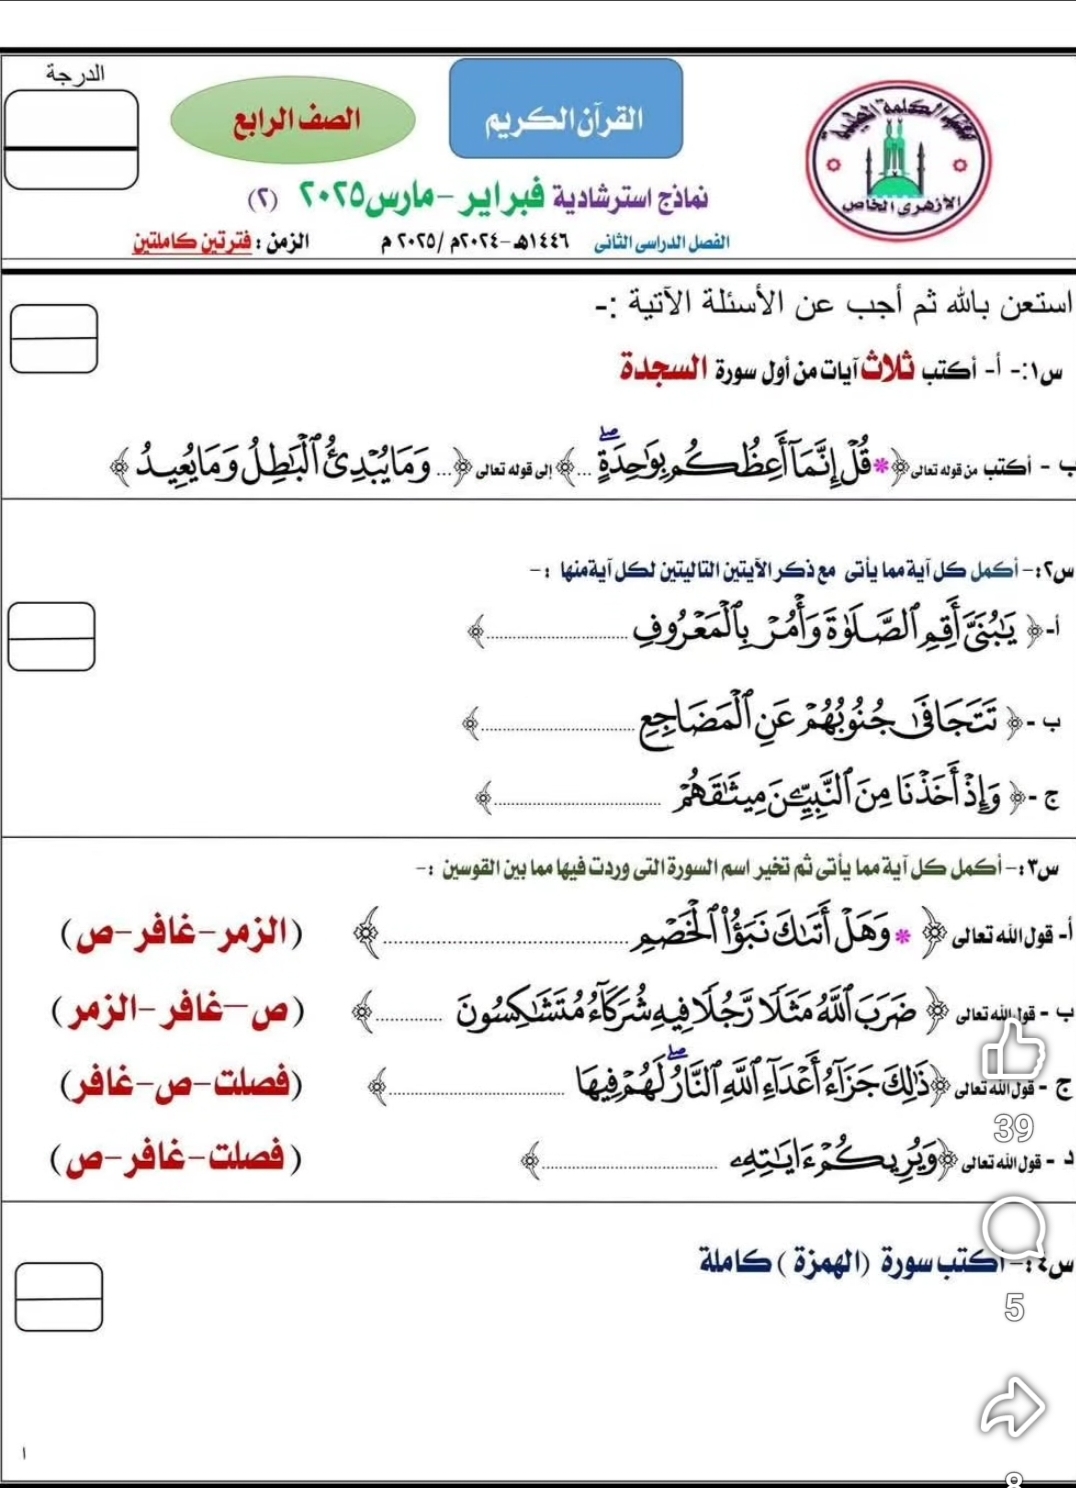 الدرجة
القرآن الكريم
الصف الرابع
نماذج استرشادية فبراير - مارس ٢٠٢٥ (٢)
الفصل الدراسى الثانى ١٤٤٦هـ - ٢٠٢٤م / ٢٠٢٥ م الزمن : فترتين كاملتين
الأزهرى الخاص
استعن بالله ثم أجب عن الأسئلة الآتية :-
س١:- أ- أكتب ثلاث آيات من أول سورة السجدة
ب - أكتب من قوله تعالى ﴿* قُلْ إِنَّمَآ أَعِظُكُم بِوَٰحِدَةٍۖ ...﴾ إلى قوله تعالى ﴿... وَمَا يُبْدِئُ ٱلْبَٰطِلُ وَمَا يُعِيدُ ﴾
س٢:- أكمل كل آية مما يأتى مع ذكر الآيتين التاليتين لكل آية منها :-
أ- ﴿ يَٰبُنَىَّ أَقِمِ ٱلصَّلَوٰةَ وَأْمُرْ بِٱلْمَعْرُوفِ ..............................﴾
ب - ﴿ تَتَجَافَىٰ جُنُوبُهُمْ عَنِ ٱلْمَضَاجِعِ ..............................﴾
ج - ﴿ وَإِذْ أَخَذْنَا مِنَ ٱلنَّبِيِّۦنَ مِيثَٰقَهُمْ ..............................﴾
س٣:- أكمل كل آية مما يأتى ثم تخير اسم السورة التى وردت فيها مما بين القوسين :-
أ- قول الله تعالى ﴿ * وَهَلْ أَتَىٰكَ نَبَؤُا۟ ٱلْخَصْمِ ..............................﴾ (الزمر-غافر-ص)
ب - قول الله تعالى ﴿ ضَرَبَ ٱللَّهُ مَثَلًا رَّجُلًا فِيهِ شُرَكَآءُ مُتَشَٰكِسُونَ ............﴾ (ص-غافر-الزمر)
ج - قول الله تعالى ﴿ذَٰلِكَ جَزَآءُ أَعْدَآءِ ٱللَّهِ ٱلنَّارُۖ لَهُمْ فِيهَا ..............................﴾ (فصلت-ص-غافر)
د - قول الله تعالى ﴿وَيُرِيكُمْ ءَايَٰتِهِۦ ..............................﴾ (فصلت-غافر-ص)
س٤:- أكتب سورة (الهمزة) كاملة
39
5
8
١